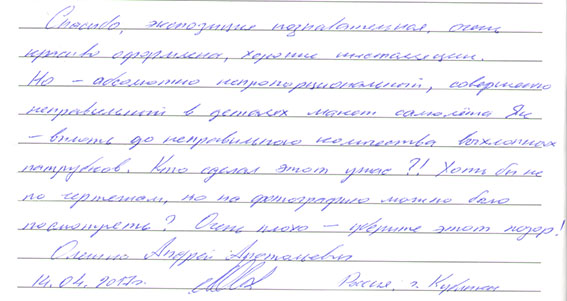 Спасибо, экспозиция познавательная, очень
красиво оформлена, хорошие инсталляции.
Но – абсолютно непропорциональный, совершенно
неправильный в деталях макет самолёта Як
– вплоть до неправильного количества выхлопных
патрубков. Кто сделал этот ужас?! Хоть бы не
по чертежам, но на фотографию можно было
посмотреть? Очень плохо – уберите этот позор!
Андрей Анатольевич
14.04.2017г. Россия, г.